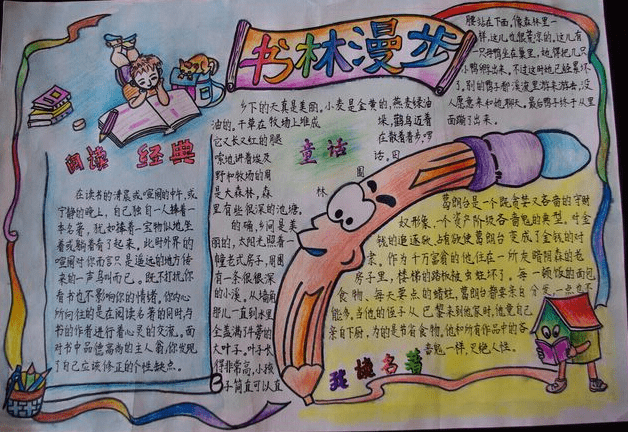 书林漫步
阅读 经典
在读书的清晨或喧闹的中午,或
宁静的晚上,自己独自一人捧着一
本名著,犹如捧着一宝物似地,坐
着或躺着看了起来,此时外界的
喧闹对你而言只是遥远的地方传
来的一声鸟叫而已。既不打扰你
看书也不影响你的情绪,你内心
所向往的是在阅读名著的同时与
书的作者进行着心灵的交流,面
对书中品德高尚的主人翁,你发现
了自己应该修正的个性缺点。
童话
乡下的天真是美丽。小麦是金黄的,燕麦绿油
油的。干草在牧场上堆成垛,鹳鸟迈着
它又长又红的腿在散着步,啰
嗦地讲着埃及话。田
野和牧场的周围
是大森林,森林
里有些很深的池塘。
的确,乡间是美
丽的,太阳光照着一
幢老式房子,周围
有一条很很深
的小溪。从墙角
那儿一直到水里
全盖满了牛蒡的
大叶子。叶子长
得非常高,小孩
子简直可以直
腰站在下面,像森林里一
样,这儿也很荒凉的。这儿有
一只母鸭坐在巢里,她得把几只
小鸭孵出来。不过这时她已经累坏
了,别的鸭子都溪流里游来游去,没
人愿意来和她聊天。最后鸭子终于从里
面蹦了出来。
我读名著
葛朗台是一个既贪婪又吝啬的守财
奴形象,一个资产阶级吝啬鬼的典型,对金
钱的追逐欲,占有欲使葛朗台变成了金钱的对
象,作为千万富翁的他,住在一所灰暗阴森的老
房子里,楼梯的踏板被虫蛀坏了。每一顿饭的面包
食物,每天要点的蜡烛,葛朗台都要亲自分发一点也不
能多,当他的侄子从巴黎来到他家时,他竟自己
亲自下厨,为的是节省食物,他和所有作品中的吝
啬鬼一样,灭绝人性。